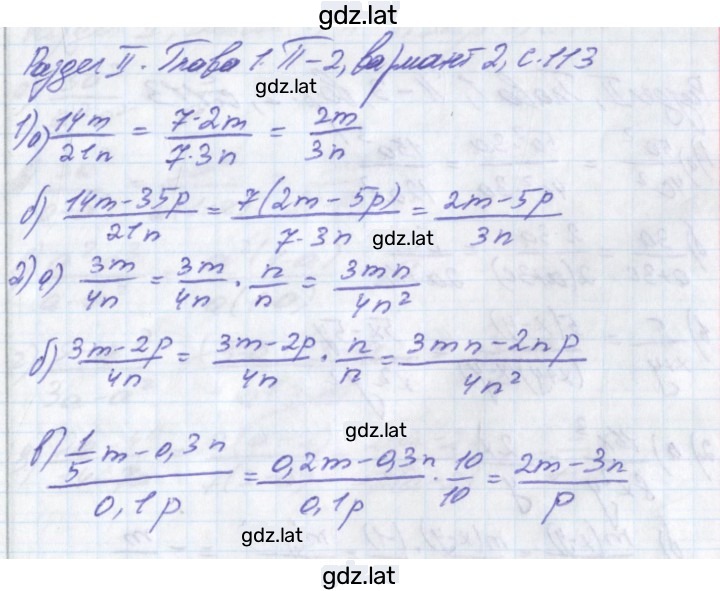 gdz.lat
Раздел II. Глава 1. П-2, вариант 2, с. 113
1) а) 14m/21n = 7·2m/7·3n = 2m/3n
б) 14m-35p/21n = 7(2m-5p)/7·3n = 2m-5p/3n
gdz.lat
2) а) 3m/4n = 3m/4n · n/n = 3mn/4n²
б) 3m-2p/4n = 3m-2p/4n · n/n = 3mn-2np/4n²
gdz.lat
в) 1/5 m-0,3n/0,1p = 0,2m-0,3n/0,1p · 10/10 = 2m-3n/p
gdz.lat
gdz.lat